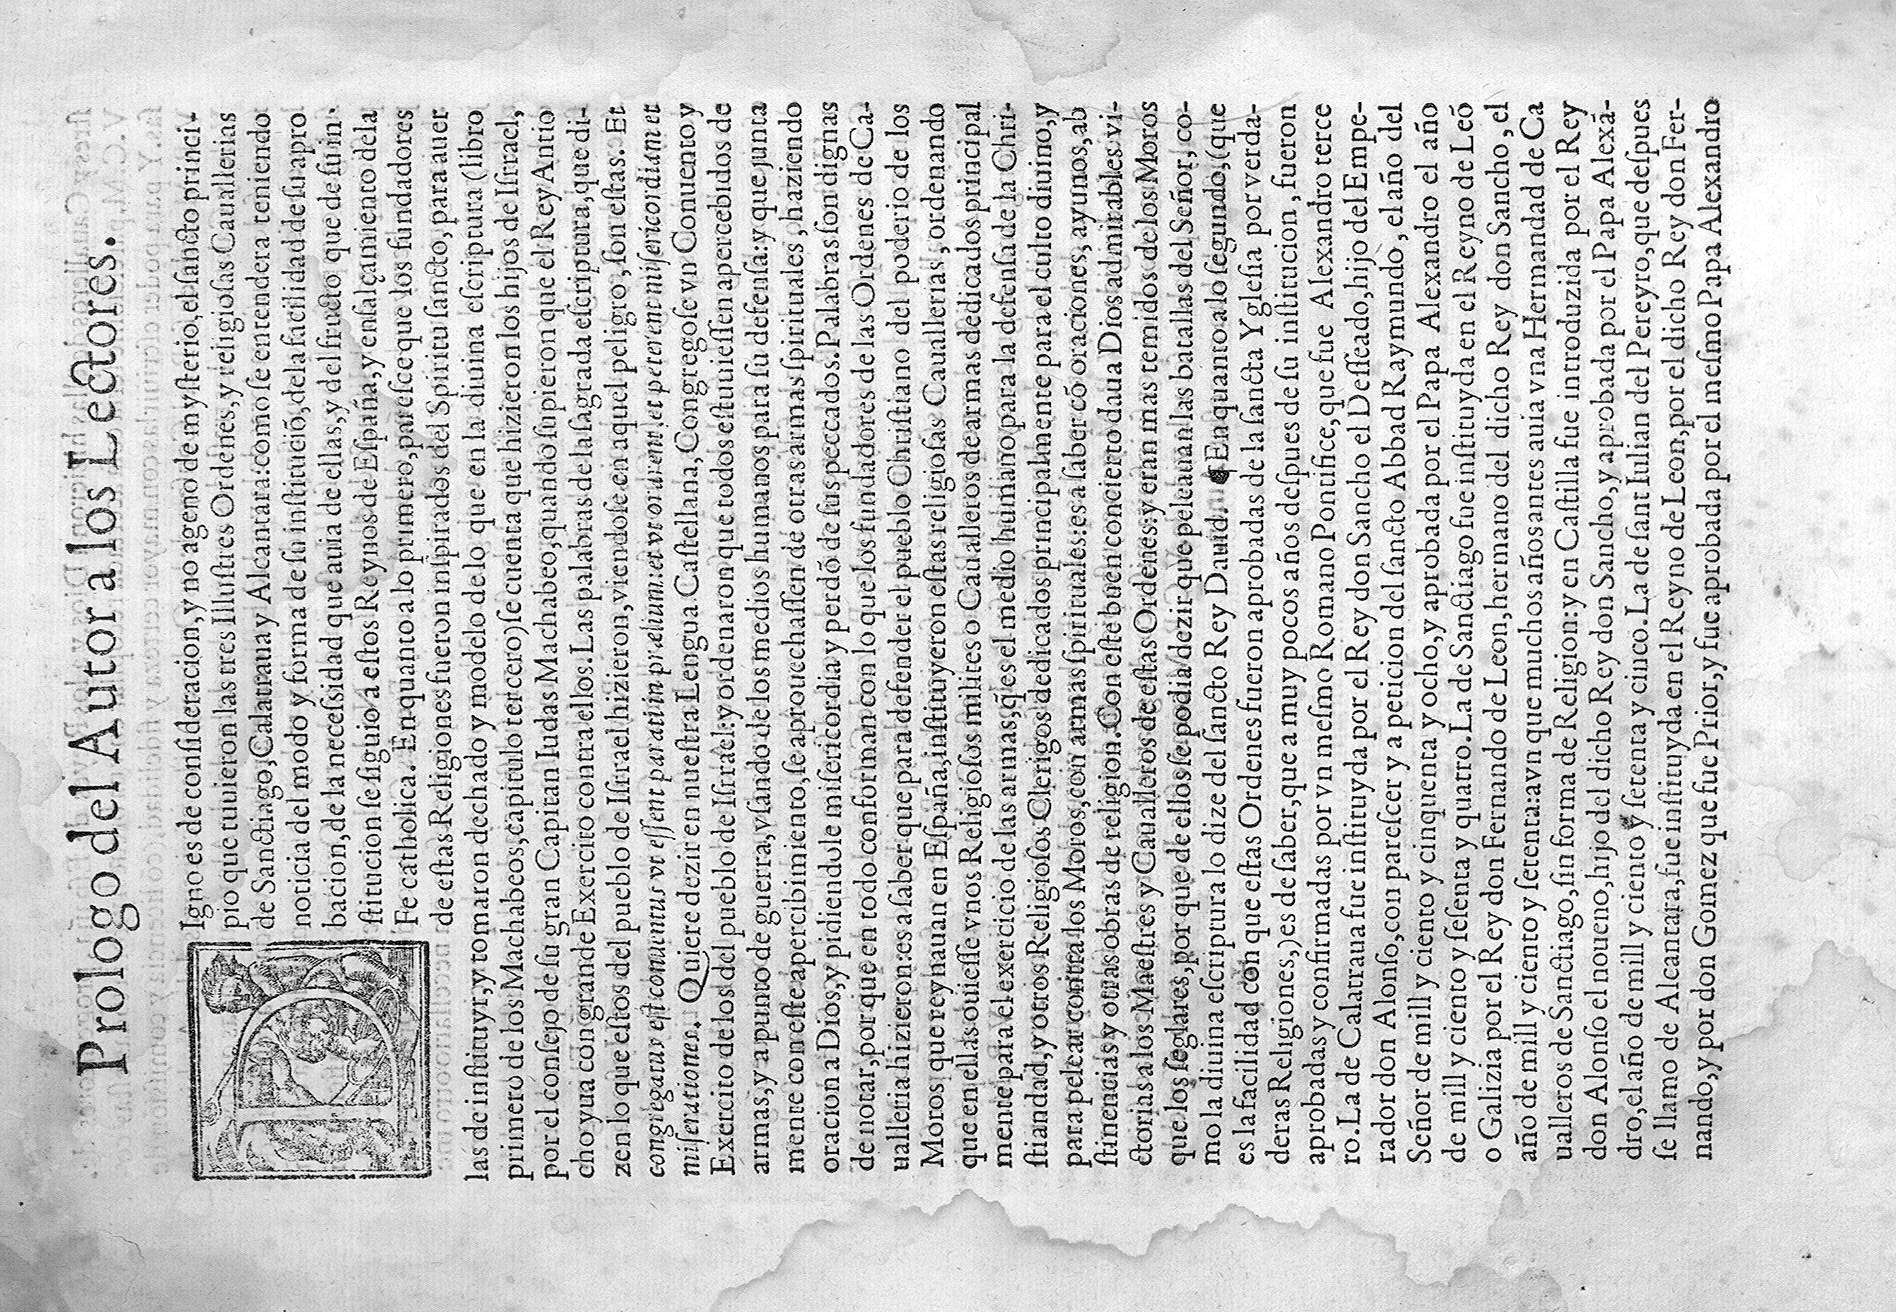 Prologo del Autor a los Lectores.
DIgno es de consideracion, y no ageno de mysterio, el sancto princi-
pio que tuuieron las tres Illustres Ordenes, y religiosas Cauallerias
de Sanctiago, Calatraua y Alcantara: como se entendera teniendo
noticia del modo y forma de su institució, de la facilidad de su apro
bacion, de la necessidad que auia de ellas, y del fructo que de su in-
stitucion se siguio a estos Reynos de España, y ensalçamiento de la
Fe catholica. En quanto a lo primero, paresce que los fundadores
de estas Religiones fueron inspirados del Spiritu sancto, para auer
las de instituyr, y tomaron dechado y modelo de lo que en la diuina escriptura (libro
primero de los Machabeos, capitulo tercero) se cuenta que hizieron los hijos de Israel,
por el consejo de su gran Capitan Iudas Machabeo, quando supieron que el Rey Antio
cho yua con grande Exercito contra ellos. Las palabras de la sagrada escriptura, que di-
zen lo que estos del pueblo de Israel hizieron, viendose en aquel peligro, son estas. Et
congregatus est conuentus vt essent parati in prælium: et vt orarent, et peterent misericordiam et
miserationes. Quiere dezir en nuestra Lengua Castellana, Congregose vn Conuento y
Exercito de los del pueblo de Israel: y ordenaron que todos estuuiessen apercebidos de
armas, y a punto de guerra, vsando de los medios humanos para su defensa: y que junta
mente con este apercibimiento, se aprouechassen de otras armas spirituales, haziendo
oracion a Dios, y pidiendole misericordia y perdō de sus peccados. Palabras son dignas
de notar, por que en todo conforman con lo que los fundadores de las Ordenes de Ca-
ualleria hizieron: es a saber que para defender el pueblo Christiano del poderio de los
Moros, que reynauan en España, instituyeron estas religiosas Cauallerias, ordenando
que en ellas ouiesse vnos Religiosos milites o Caualleros de armas dedicados principal
mente para el exercicio de las armas, q̄ es el medio humano para la defensa de la Chri-
stiandad, y otros Religiosos Clerigos dedicados principalmente para el culto diuino, y
para pelear contra los Moros, con armas spirituales: es a saber cō oraciones, ayunos, ab
stinencias y otras obras de religion. Con este buen concierto daua Dios admirables vi-
ctorias a los Maestres y Caualleros de estas Ordenes: y eran mas temidos de los Moros
que los seglares, por que de ellos se podia dezir que peleauan las batallas del Señor, co-
mo la diuina escriptura lo dize del sancto Rey Dauid. ¶ En quanto a lo segundo, (que
es la facilidad con que estas Ordenes fueron aprobadas de la sancta Yglesia por verda-
deras Religiones,) es de saber, que a muy pocos años despues de su institucion, fueron
aprobadas y confirmadas por vn mesmo Romano Pontifice, que fue Alexandro terce
ro. La de Calatraua fue instituyda por el Rey don Sancho el Desseado, hijo del Empe-
rador don Alonso, con parescer y a peticion del sancto Abbad Raymundo, el año del
Señor de mill y ciento y cinquenta y ocho, y aprobada por el Papa Alexandro el año
de mill y ciento y sesenta y quatro. La de Sanctiago fue instituyda en el Reyno de Leō
o Galizia por el Rey don Fernando de Leon, hermano del dicho Rey don Sancho, el
año de mill y ciento y setenta: avn que muchos años antes auia vna Hermandad de Ca
ualleros de Sanctiago, sin forma de Religion: y en Castilla fue introduzida por el Rey
don Alonso el noueno, hijo del dicho Rey don Sancho, y aprobada por el Papa Alexā-
dro, el año de mill y ciento y setenta y cinco. La de sant Iulian del Pereyro, que despues
se llamo de Alcantara, fue instituyda en el Reyno de Leon, por el dicho Rey don Fer-
nando, y por don Gomez que fue Prior, y fue aprobada por el mesmo Papa Alexandro